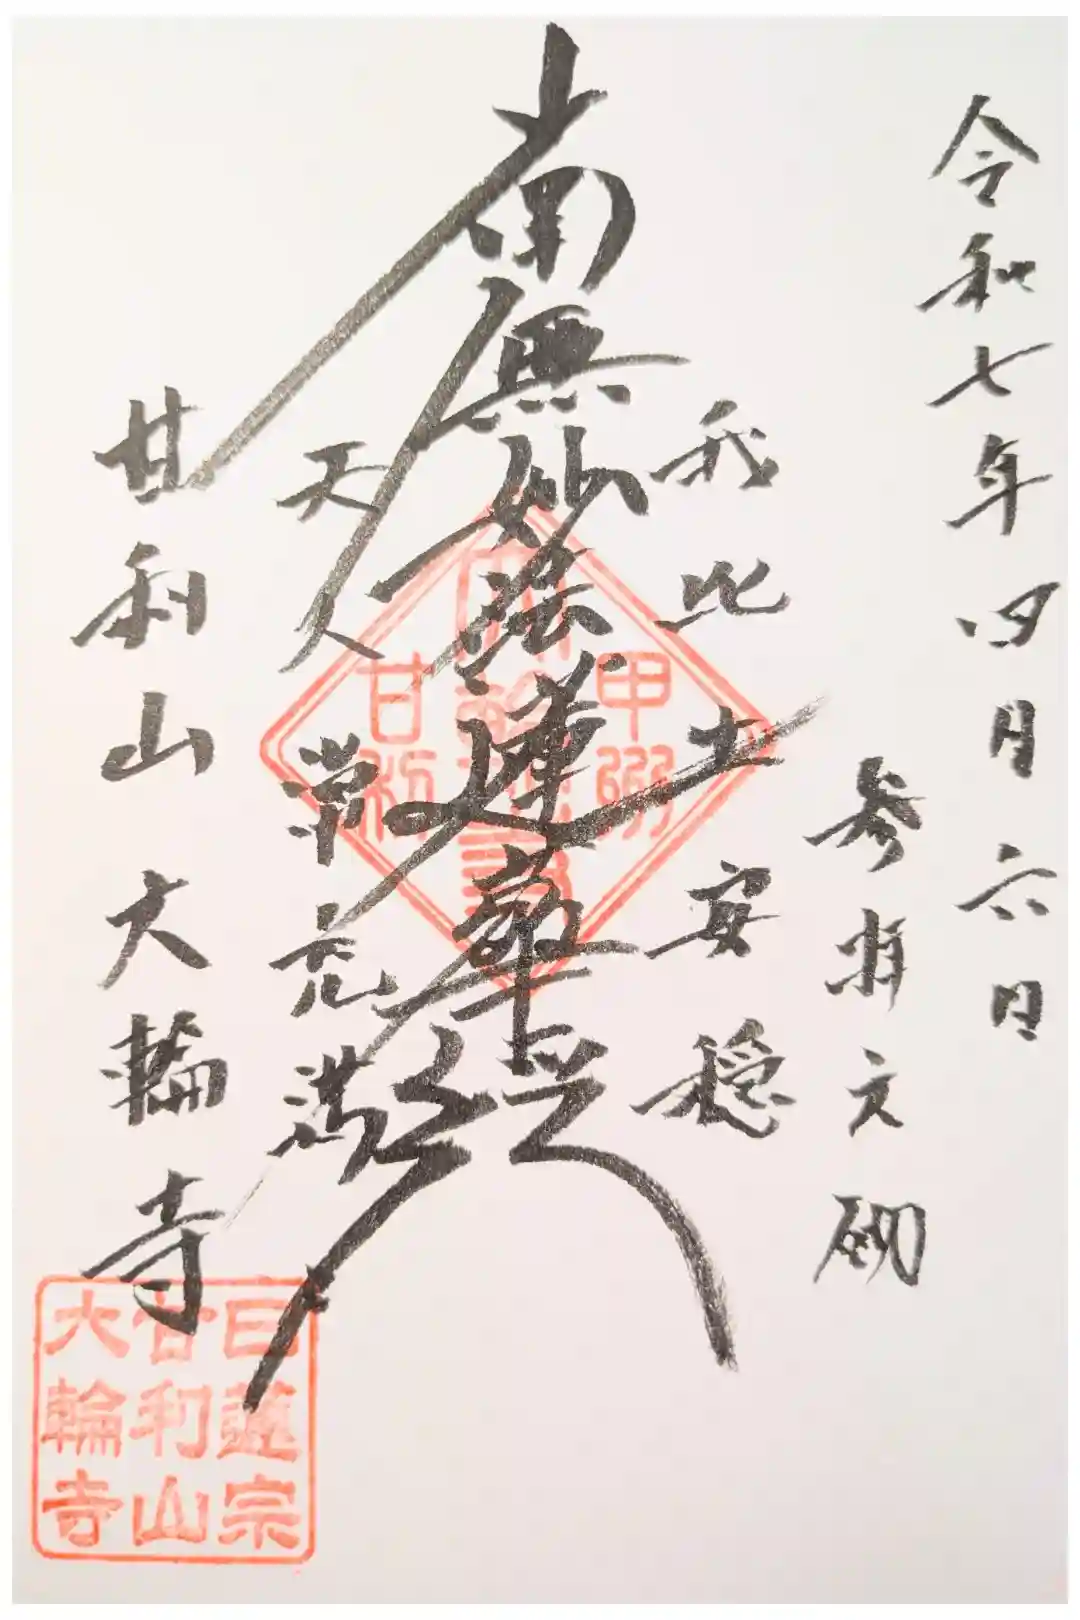 令和七年四月六日
参拝之砌
我此土安穏
南無妙法蓮華経
天人常充満
甘利山大輪寺
甲州
大輪寺
甘利
日蓮宗
甘利山
大輪寺